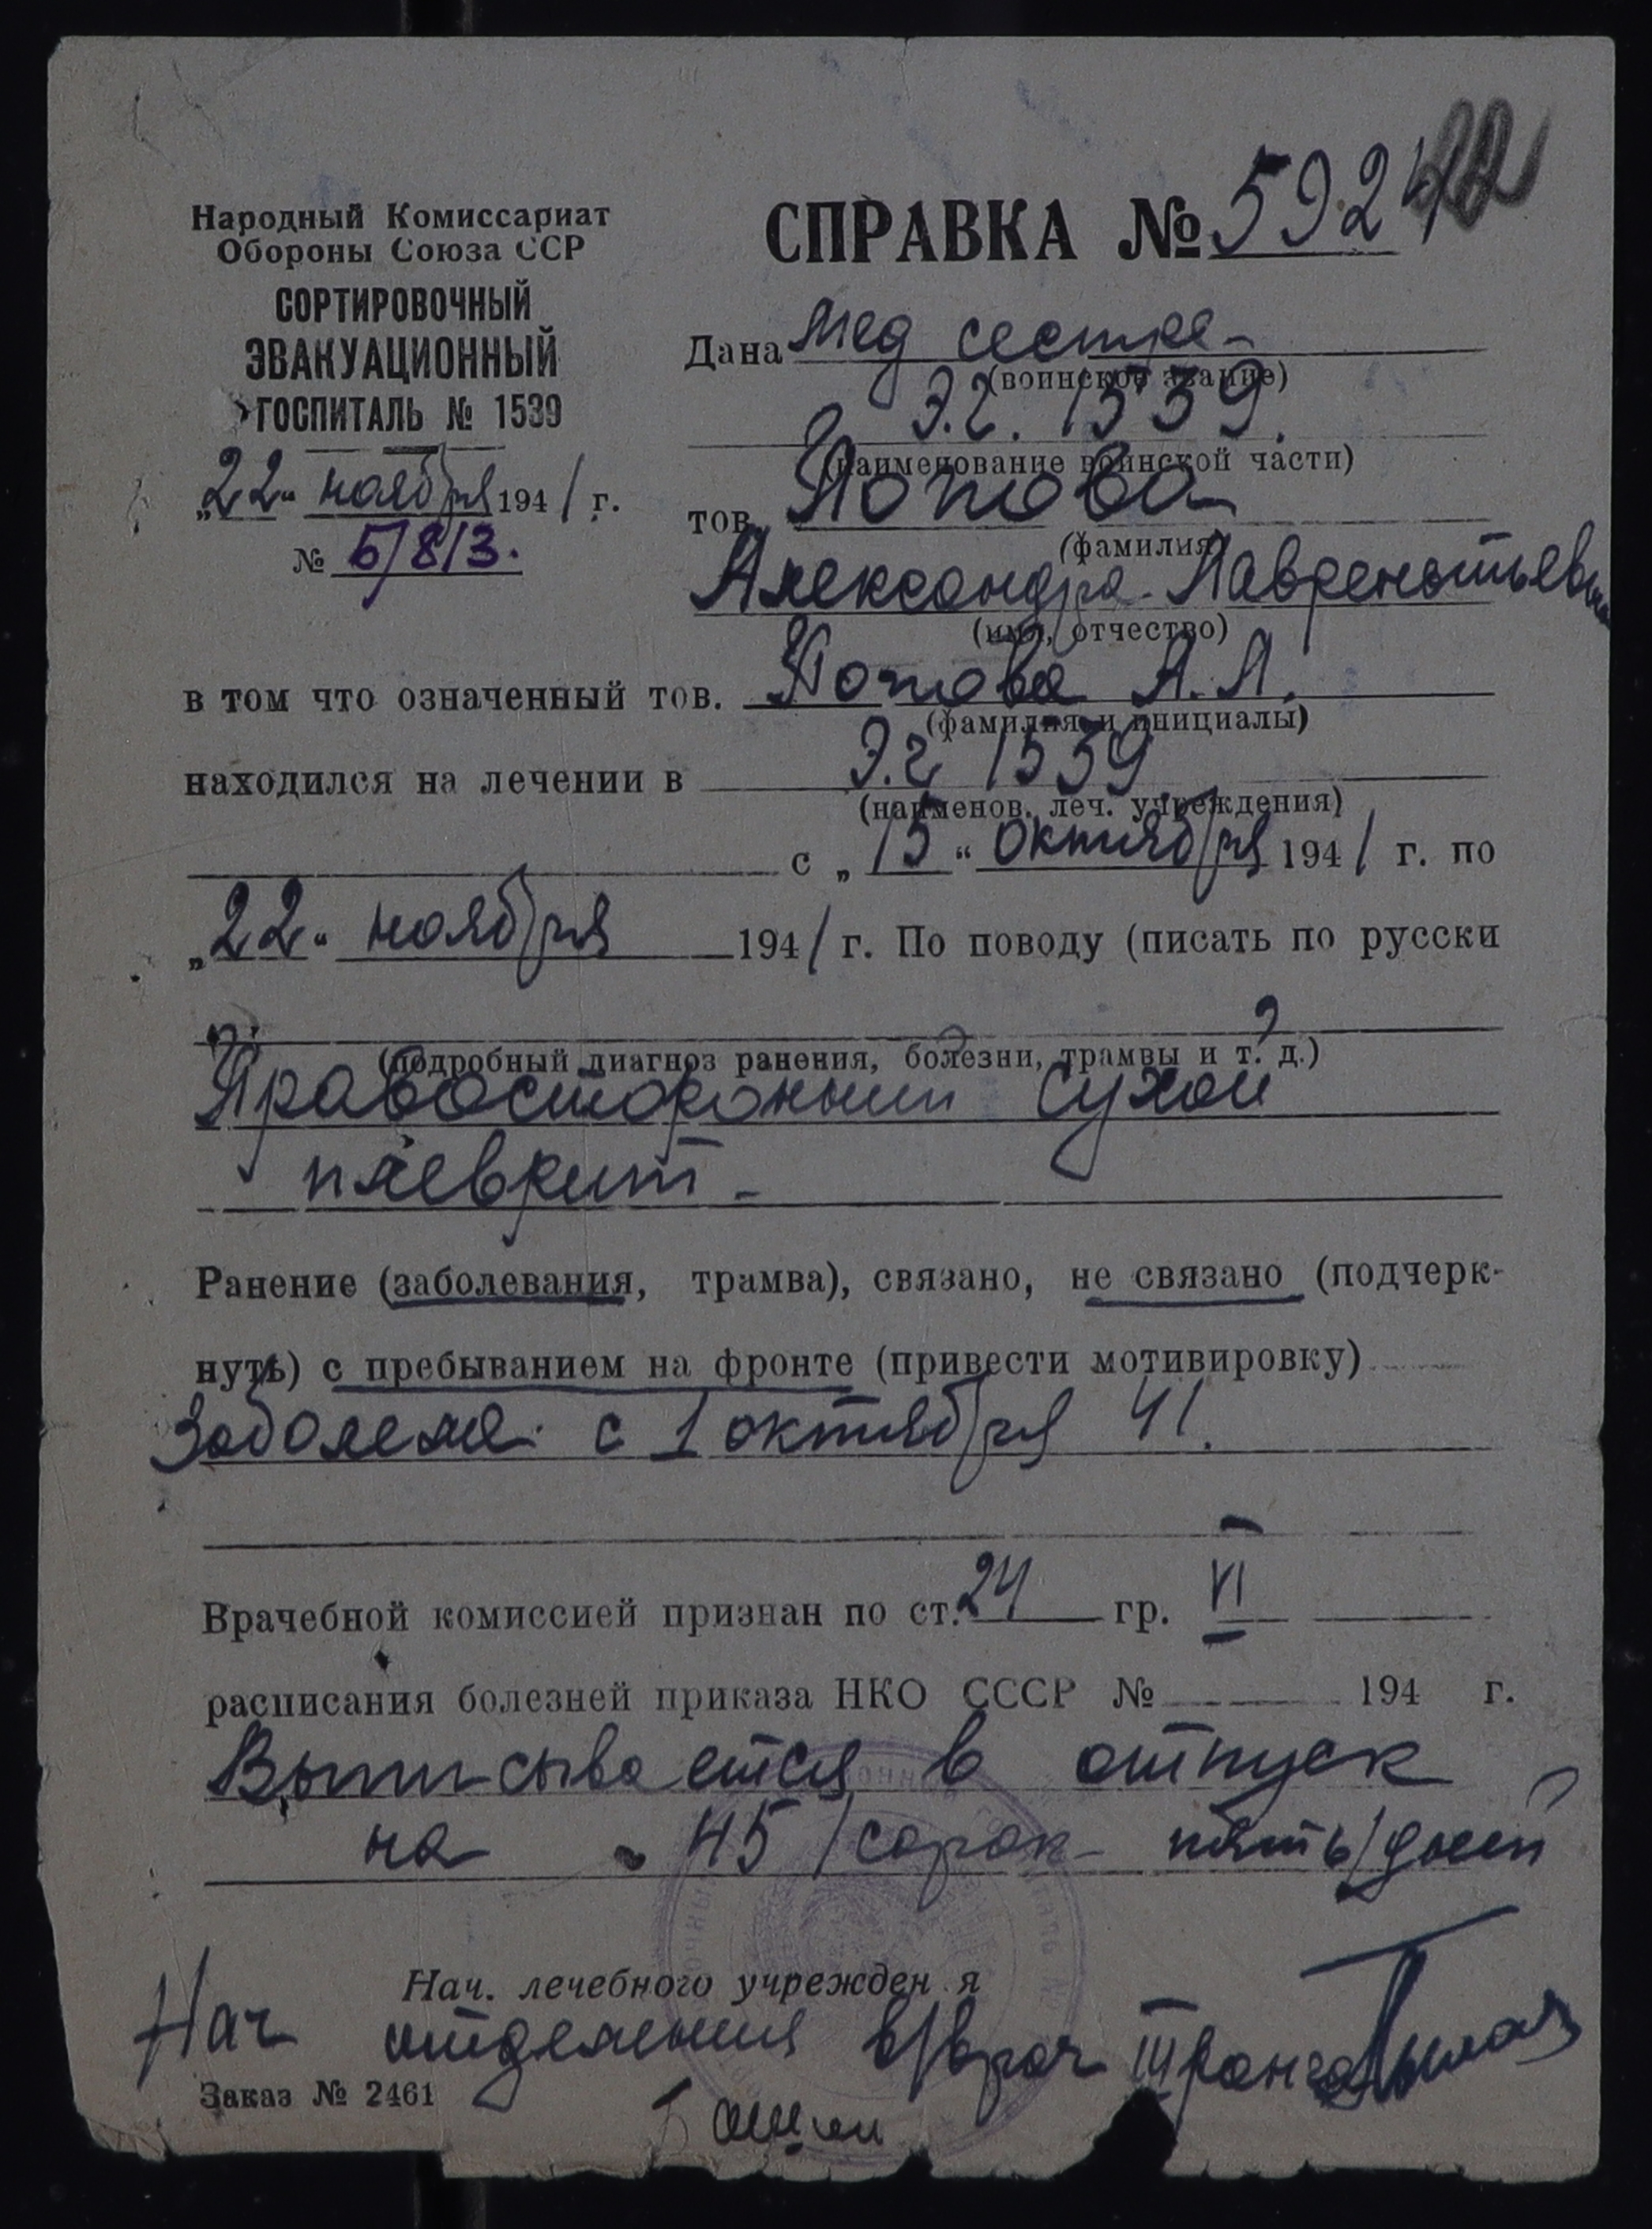 Народный Комиссариат
Обороны Союза ССР
СОРТИРОВОЧНЫЙ
ЭВАКУАЦИОННЫЙ
ГОСПИТАЛЬ № 1539
„22" ноября 1941 г.
№ 5/8/3.
СПРАВКА № 592
Дана мед сестре
(воинское звание)
Э.г. 1539.
(наименование воинской части)
тов. Попова
(фамилия)
Александра Лаврентьевна
(имя, отчество)
в том что означенный тов. Попова А.Л.
(фамилия и инициалы)
находился на лечении в Э.г 1539
(наименов. леч. учреждения)
с „15" октября 1941 г. по
„22" ноября 1941 г. По поводу (писать по русски
(подробный диагноз ранения, болезни, трамвы и т. д.)
Правосторонний сухой
плеврит
Ранение (заболевания, трамва), связано, не связано (подчерк-
нуть) с пребыванием на фронте (привести мотивировку)
Заболела с 1 октября 41.
Врачебной комиссией признан по ст. 24 гр. VI
расписания болезней приказа НКО СССР № 194 г.
Выписывается в отпуск
на 45 /сорок пять/ дней
Нач. лечебного учрежден я
Нач отделения в/врач III ранга
Заказ № 2461